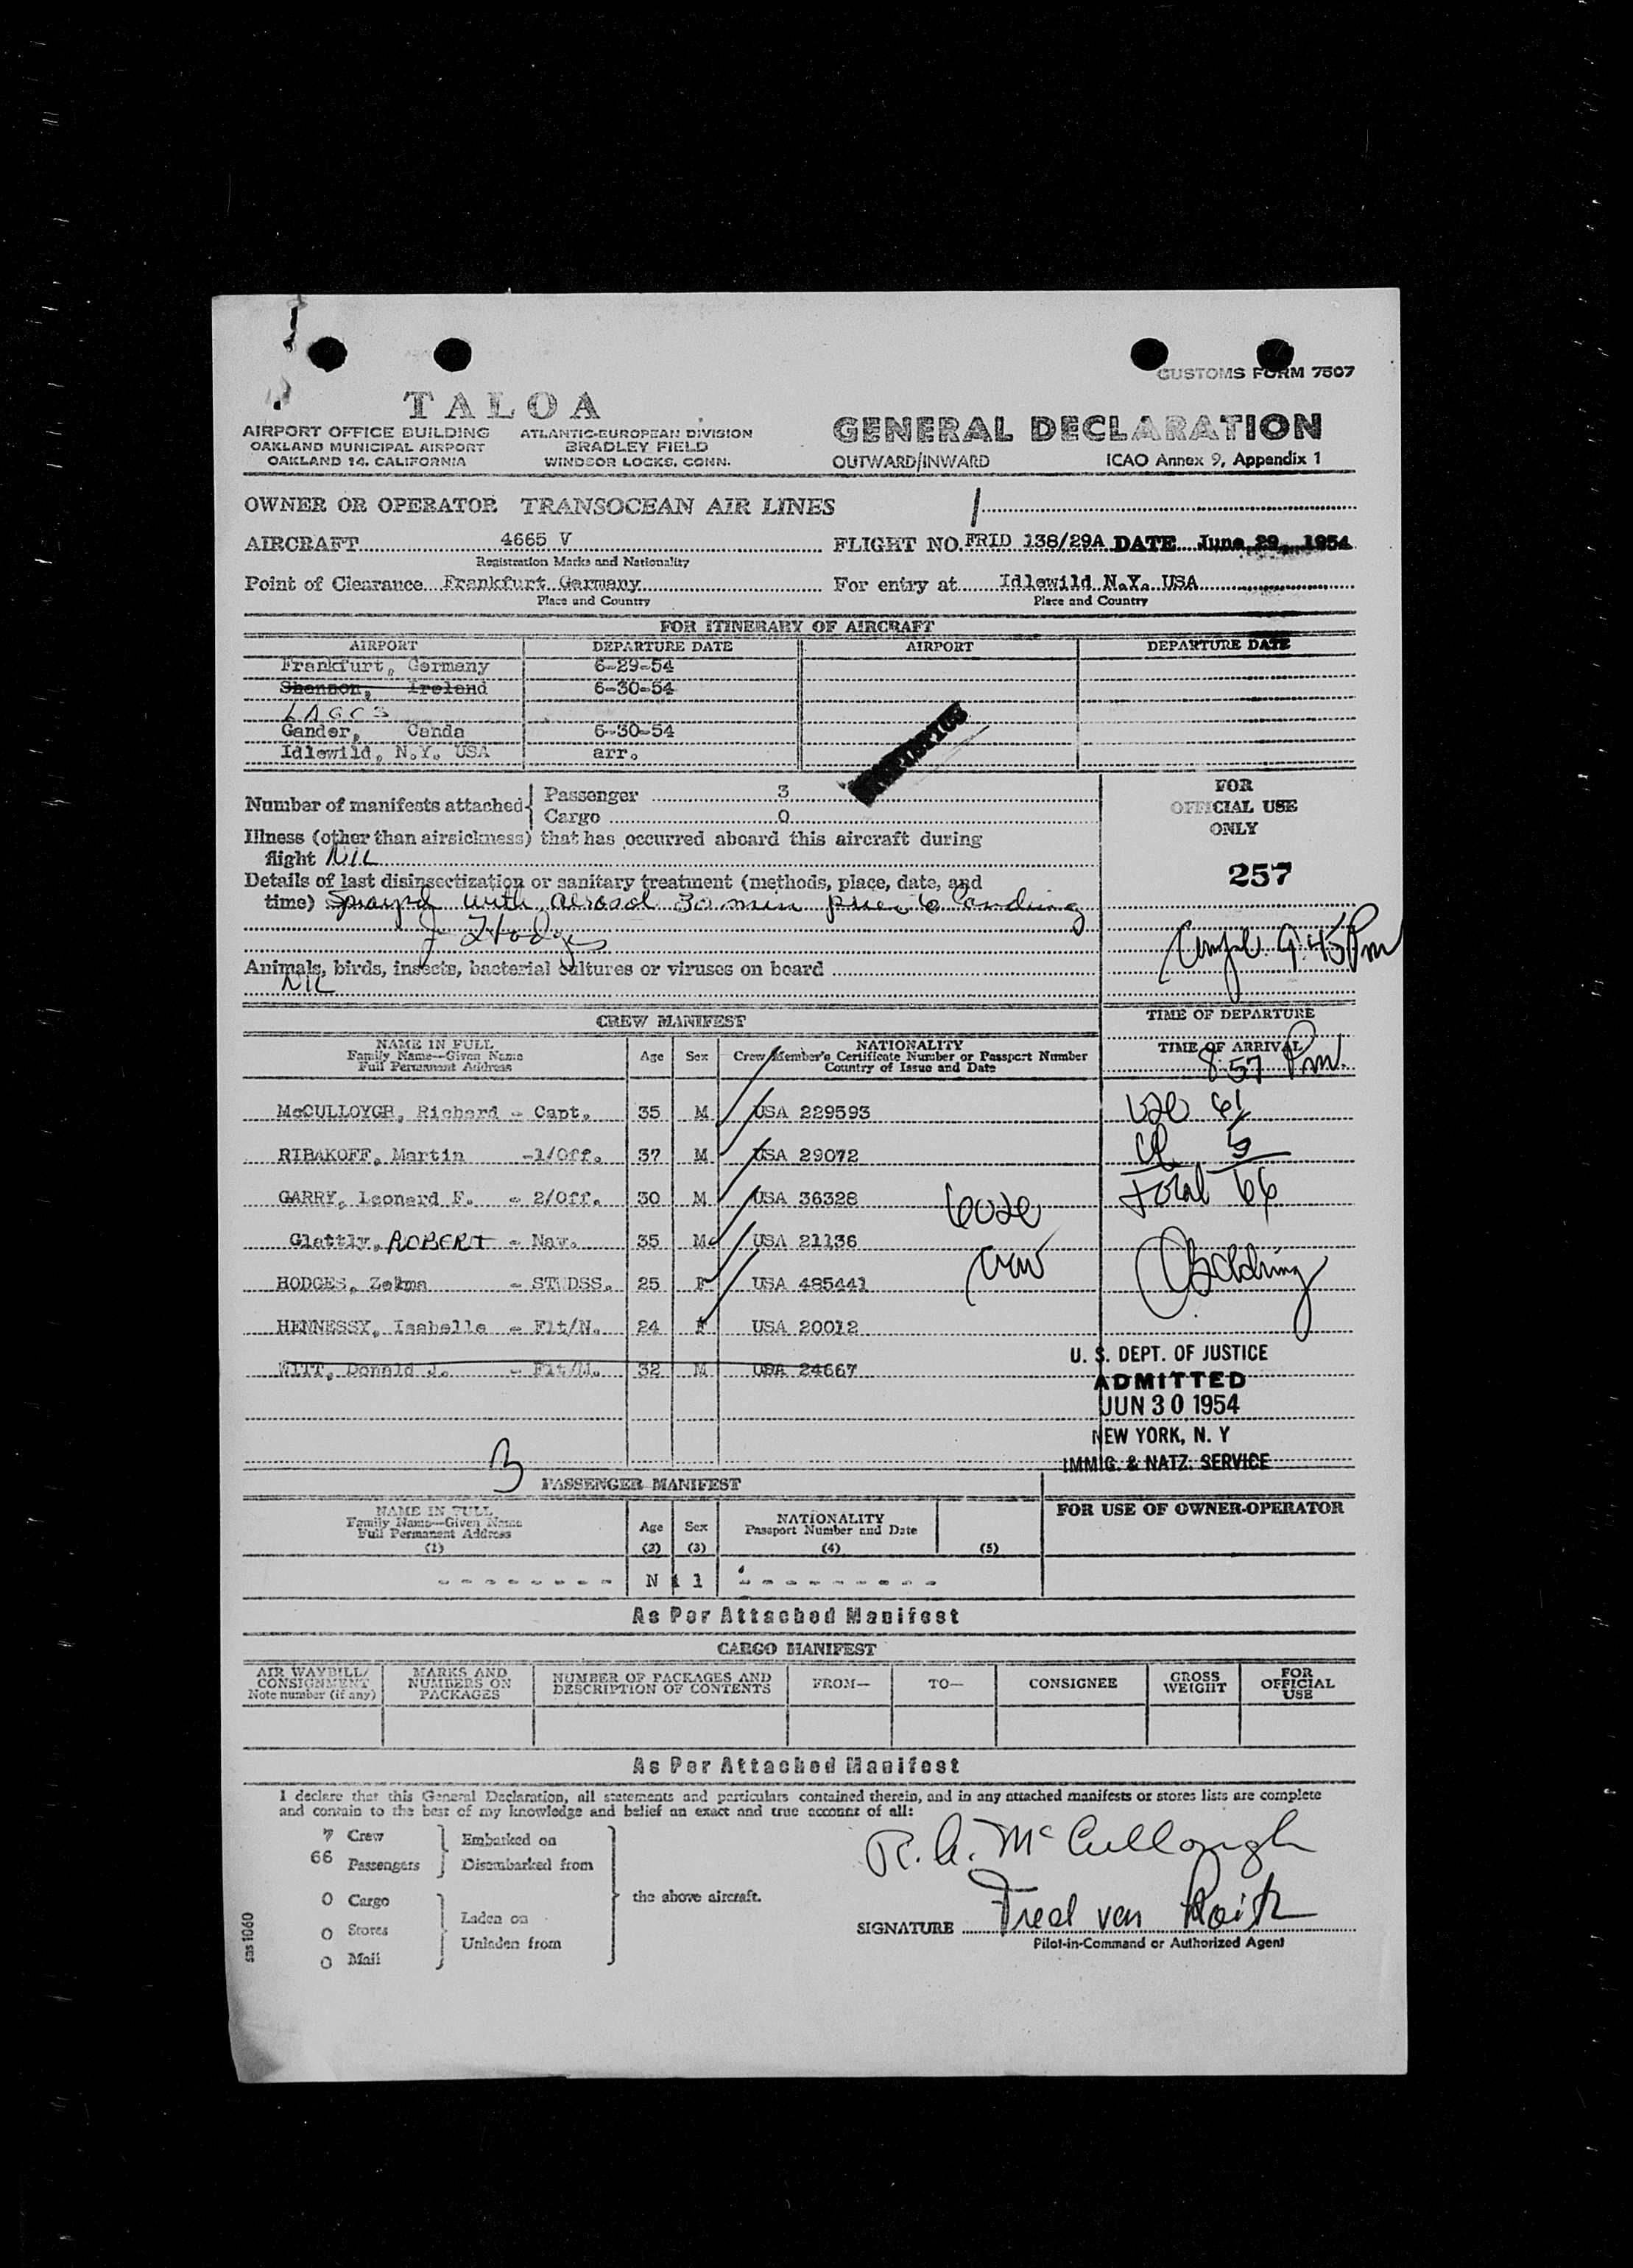 CUSTOMS FORM 7507
TALOA
AIRPORT OFFICE BUILDING
OAKLAND MUNICIPAL AIRPORT
OAKLAND 14, CALIFORNIA
ATLANTIC-EUROPEAN DIVISION
BRADLEY FIELD
WINDSOR LOCKS, CONN.
GENERAL DECLARATION
OUTWARD/INWARD ICAO Annex 9, Appendix 1
OWNER OR OPERATOR TRANSOCEAN AIR LINES
AIRCRAFT 4665 V FLIGHT NO. FRID 138/29A DATE June 29, 1954
Registration Marks and Nationality
Point of Clearance Frankfurt Germany For entry at Idlewild N.Y. USA
Place and Country Place and Country
FOR ITINERARY OF AIRCRAFT
AIRPORT DEPARTURE DATE AIRPORT DEPARTURE DATE
Frankfurt, Germany 6-29-54
Shannon, Ireland 6-30-54
LAGES
Gander, Canda 6-30-54
Idlewild, N.Y. USA arr.
Number of manifests attached
Passenger 3
Cargo 0
Illness (other than airsickness) that has occurred aboard this aircraft during
flight NIL
Details of last disinsectization or sanitary treatment (methods, place, date, and
time) Sprayed with aerosol 30 min prior to landing
J Hodges
Animals, birds, insects, bacterial cultures or viruses on board
NIL
FOR
OFFICIAL USE
ONLY
257
9:45 Pm
TIME OF DEPARTURE
TIME OF ARRIVAL
8:57 Pm.
CREW MANIFEST
NAME IN FULL
Family Name—Given Name
Full Permanent Address
Age
Sex
NATIONALITY
Crew Member's Certificate Number or Passport Number
Country of Issue and Date
McCULLOYGH, Richard - Capt. 35 M USA 229593
RIBAKOFF, Martin -1/Off. 37 M USA 29072
GARRY, Leonard F. - 2/Off. 30 M USA 36328
Glattly, ROBERT - Nav. 35 M USA 21136
HODGES, Zelma - STWDSS. 25 F USA 485441
HENNESSY, Isabelle - Flt/N. 24 F USA 20012
WITT, Donald J. - Flt/M. 32 M USA 24667
61
5
Total 66
U. S. DEPT. OF JUSTICE
ADMITTED
JUN 30 1954
NEW YORK, N. Y
IMMIG. & NATZ. SERVICE
3
PASSENGER MANIFEST
NAME IN FULL
Family Name—Given Name
Full Permanent Address
(1)
Age
(2)
Sex
(3)
NATIONALITY
Passport Number and Date
(4)
(5)
FOR USE OF OWNER-OPERATOR
- - - - - - - - N i l - - - - - - - - -
As Per Attached Manifest
CARGO MANIFEST
AIR WAYBILL/
CONSIGNMENT
Note number (if any)
MARKS AND
NUMBERS ON
PACKAGES
NUMBER OF PACKAGES AND
DESCRIPTION OF CONTENTS
FROM—
TO—
CONSIGNEE
GROSS
WEIGHT
FOR
OFFICIAL
USE
As Per Attached Manifest
I declare that this General Declaration, all statements and particulars contained therein, and in any attached manifests or stores lists are complete
and contain to the best of my knowledge and belief an exact and true account of all:
7 Crew
66 Passengers
Embarked on
Disembarked from
0 Cargo
0 Stores
0 Mail
Laden on
Unladen from
the above aircraft.
R. A. McCullough
SIGNATURE Fred van
Pilot-in-Command or Authorized Agent
sas 1060